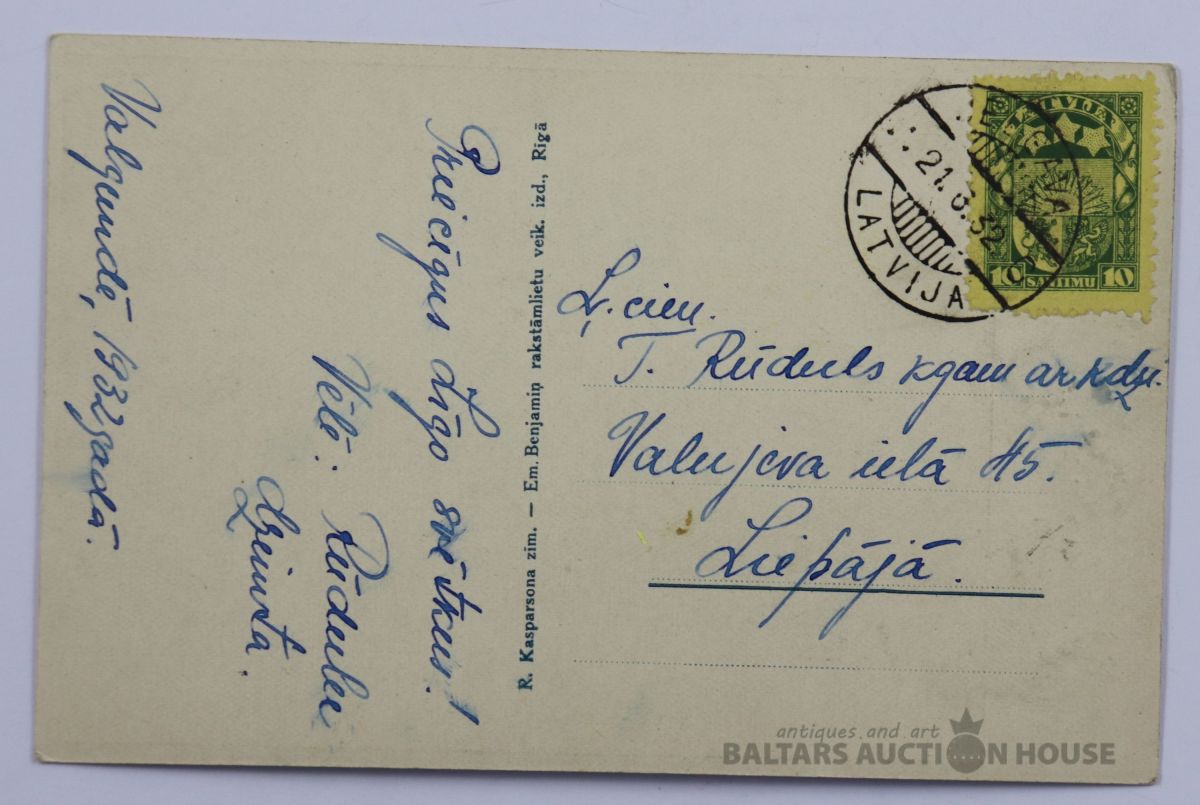 Priecīgus Līgo svētkus!
Vēlē: Rūduļu
ģimeta.
Valgundē, 1932 gadā.
R. Kasparsona zim. — Em. Benjamiņ rakstāmlietu veik. izd., Rīgā
LATVIJA
10 SANTIMU 10
21.6.32
LATVIJA
Ļ. cien.
T. Rūduls kgam ar kdzi.
Valujeva ielā 45.
Liepājā.
antiques and art
BALTARS AUCTION HOUSE